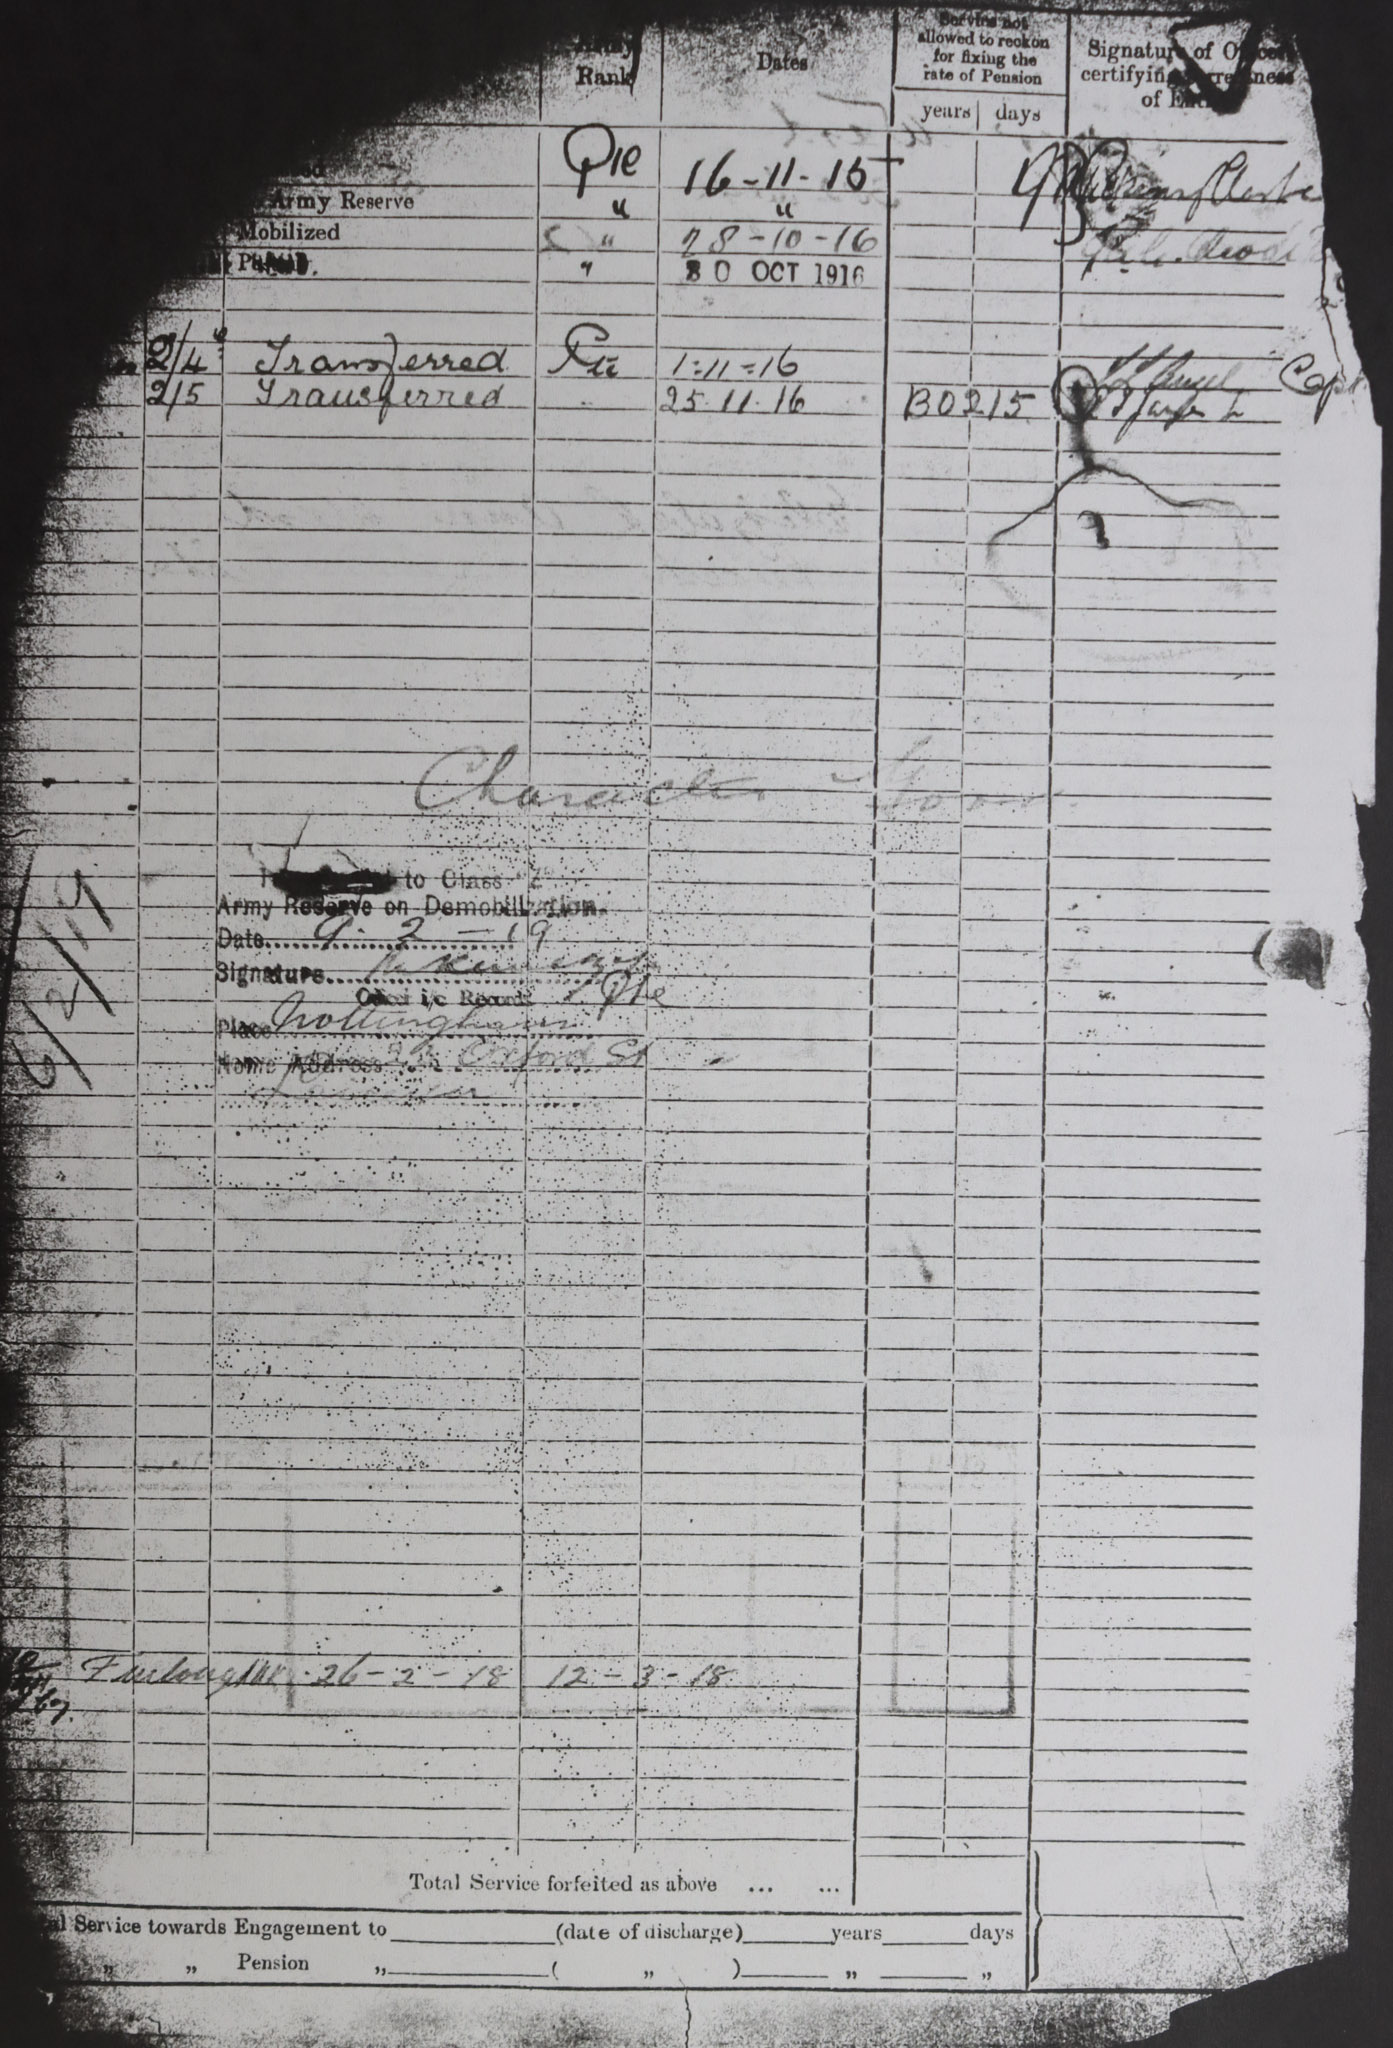 Army Rank
Dates
Service not allowed to reckon for fixing the rate of Pension
years days
Signature of certifying of
Pte 16-11-15
Army Reserve " "
Mobilized " 28-10-16
" 30 OCT 1916
2/4 Transferred Pte 1-11-16
2/5 Transferred 25.11.16 BO215 Capt
Character Good
to Class Z
Army Reserve on Demobilization.
Date 9.2-19
6/2/19
Signature
Officer i/c Records Pte
Place Nottingham
Home Address Oxford St
Furlough 26-2-18 12-3-18
Total Service forfeited as above ... ...
Service towards Engagement to (date of discharge) years days
" " Pension " ( " ) " "